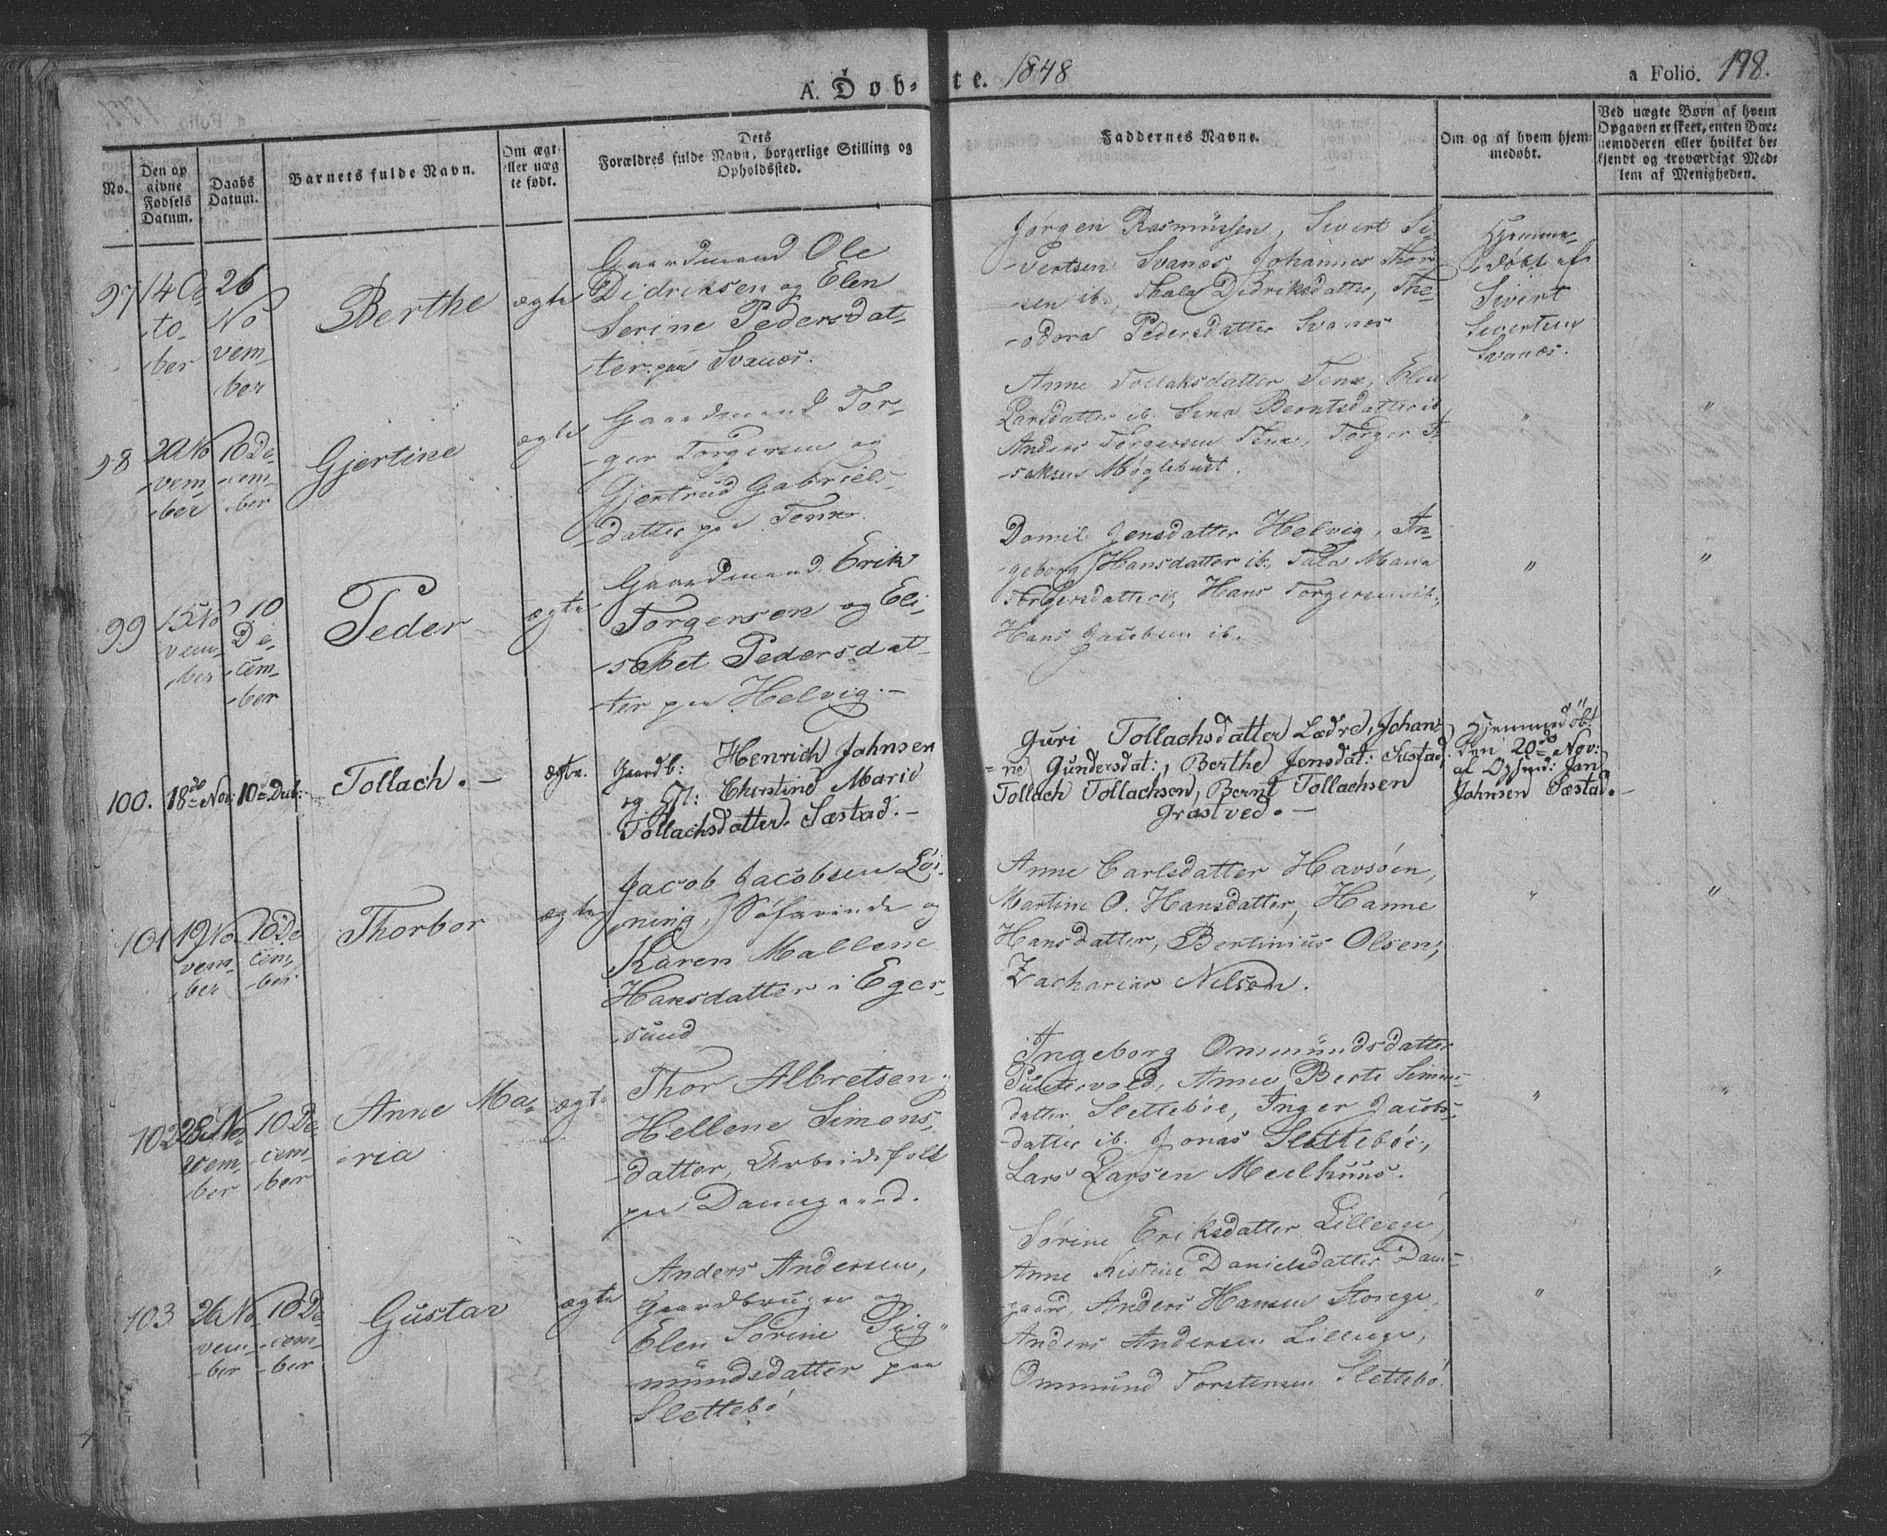 A. Døb- te. 1848
a Folio. 198.
No.
Den op
givne
Fødsels
Datum.
Daabs
Datum.
Barnets fulde Navn.
Om ægt
eller uæg
te født.
Dets
Forældres fulde Navn, borgerlige Stilling og
Opholdssted.
Faddernes Navne.
Om og af hvem hjem-
medøbt.
Ved uægte Børn af hvem
Opgaven er skeet, enten Bar-
nemoderen eller hvilket be-
kjendt og troværdigt Med-
lem af Menigheden.
97
14 Oc
-to-
-ber
26
No
vem-
-ber
Berthe
ægte
Gaardmand Ole
Didriksen og Elen
Serine Pedersdat-
-ter paa Svanes.
Jørgen Rasmussen, Sivert Si-
-vertsen Svanes, Johannes Thor-
-sen ib. Thala Didriksdatter, The-
-odora Pedersdatter Svanes
Hjemme-
døbt af
Sivert
Sivertsen
Svanæs.
98
20 No
-vem-
-ber
10 De-
-cem-
-ber
Gjertine
ægte
Gaardmand Tor-
-ger Torgersen og
Gjertrud Gabriels-
-datter paa Tenx.
Anne Tollaksdatter Tenx, Elen
Larsdatter ib. Sina Berntsdatter ib.
Anders Torgersen Tenx, Torger I-
-saksen Møglebust.
"
"
99
15 No
vem-
-ber
10
De-
-cem-
-ber
Peder
ægte
Gaardmand Erik
Torgersen og Eli-
-sabet Pedersdat-
-ter paa Helvig.-
Domil Jensdatter Helvig, In-
-geborg Hansdatter ib., Tala Maria
Torgersdatter ib, Hans Torgersen ib.,
Hans Jacobsen ib.
"
"
100.
18de Nov:
10= Decb:
Tollach.-
ægte.
Gaardb: Henrich Johnsen
og H: Christine Marie
Tollachsdatter. Sæstad.-
Guri Tollachsdatter Lædre, Johan-
=ne Gundersdat:, Berthe Jensdat: Sæstad,
Tollach Tollachsen, Bernt Tollachsen
Græstved.-
Hjemmedøbt
den 20de Nov:
af Jan
Johnsen Sæstad.-
"
101
19 No
vem-
-ber
10 De
cem-
-ber
Thorbor
ægte
Jacob Jacobsen Løi-
-ning, Søfarende og
Karen Mallene
Hansdatter i Eger-
-sund
Anne Carlsdatter Havsøen,
Martine O. Hansdatter, Hanne
Hansdatter, Bertinius Olsen,
Zacharias Nilsen.
"
"
102
28 No
vem-
-ber
10 De-
-cem-
-ber
Anne Ma-
-ria
ægte
Thor Albretsen,
Hellene Simons-
-datter, Arbeidsfolk
paa Damgaard.
Ingeborg Ommundsdatter
Puntervold, Anne Berte Simons-
datter Slettebøe, Inger Jacobs-
-datter ib. Jonas Slettebøe,
Lars Larsen Meelhuus.
"
"
103
26 No
vem-
-ber
10 De
-cem-
-ber
Gustav
ægte
Anders Andersen,
Gaardbruger og
Elen Sørine Sig-
-mundsdatter paa
Slettebø
Sørine Eriksdatter Lilleege,
Anne Kistine Danielsdatter Dam-
-gaard, Anders Hansen Storege,
Anders Andersen Lilleege,
Ommund Torstensen Slettebø.
"
"